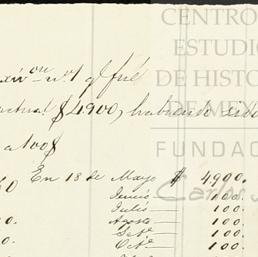 CENTRO
ESTUDIO
DE HISTO
DE MEX
FUNDAC
Carlos
nº 1 q fué
actual $4900, habiendo sido
a 100$
En 18 de Mayo $ 4900.
Junio 100.
Julio 100.
Agosto 100.
Setº 100.
Octº 100.